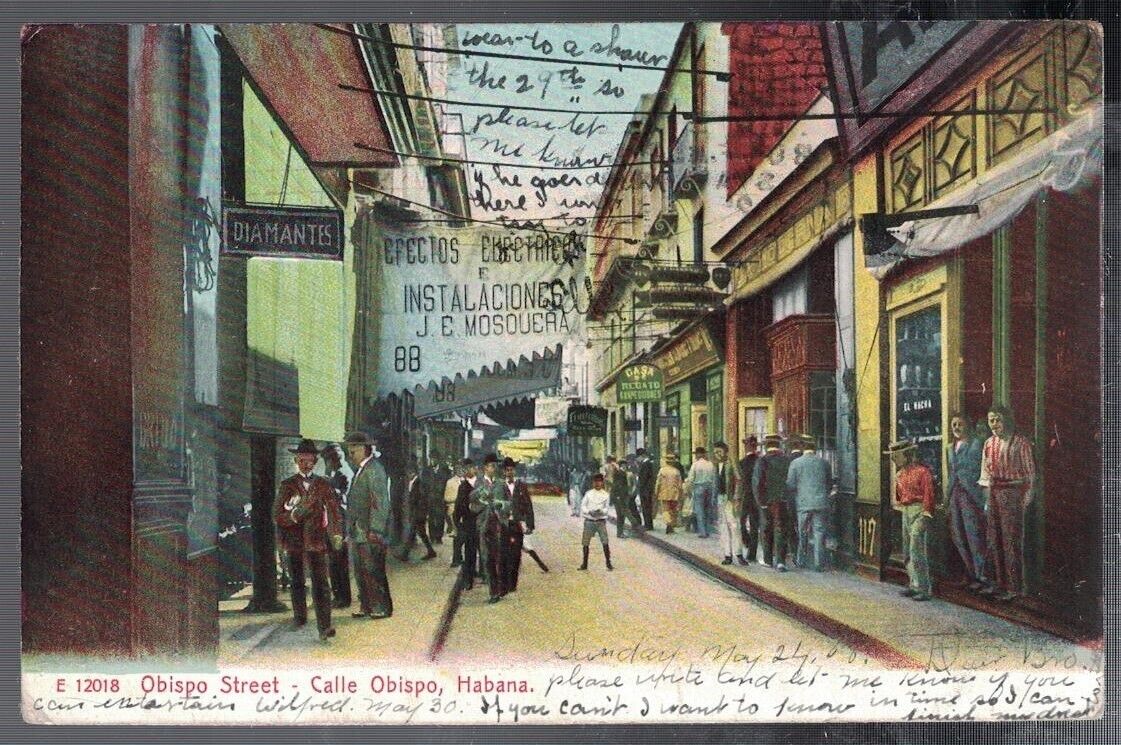 wear to a shower
the 29th so
please let
me know
he goes
there I
to
DIAMANTES
EFECTOS ELECTRICOS
E
INSTALACIONES
J. E. MOSQUERA
88
88
CASA
DE
REGALO
EL HACHA
117
Sunday May 24, Dear Bro.
E 12018 Obispo Street - Calle Obispo, Habana.
please write and let me know if you
can entertain Wilfred. May 30. If you can't I want to know in time so I can
finish my dress